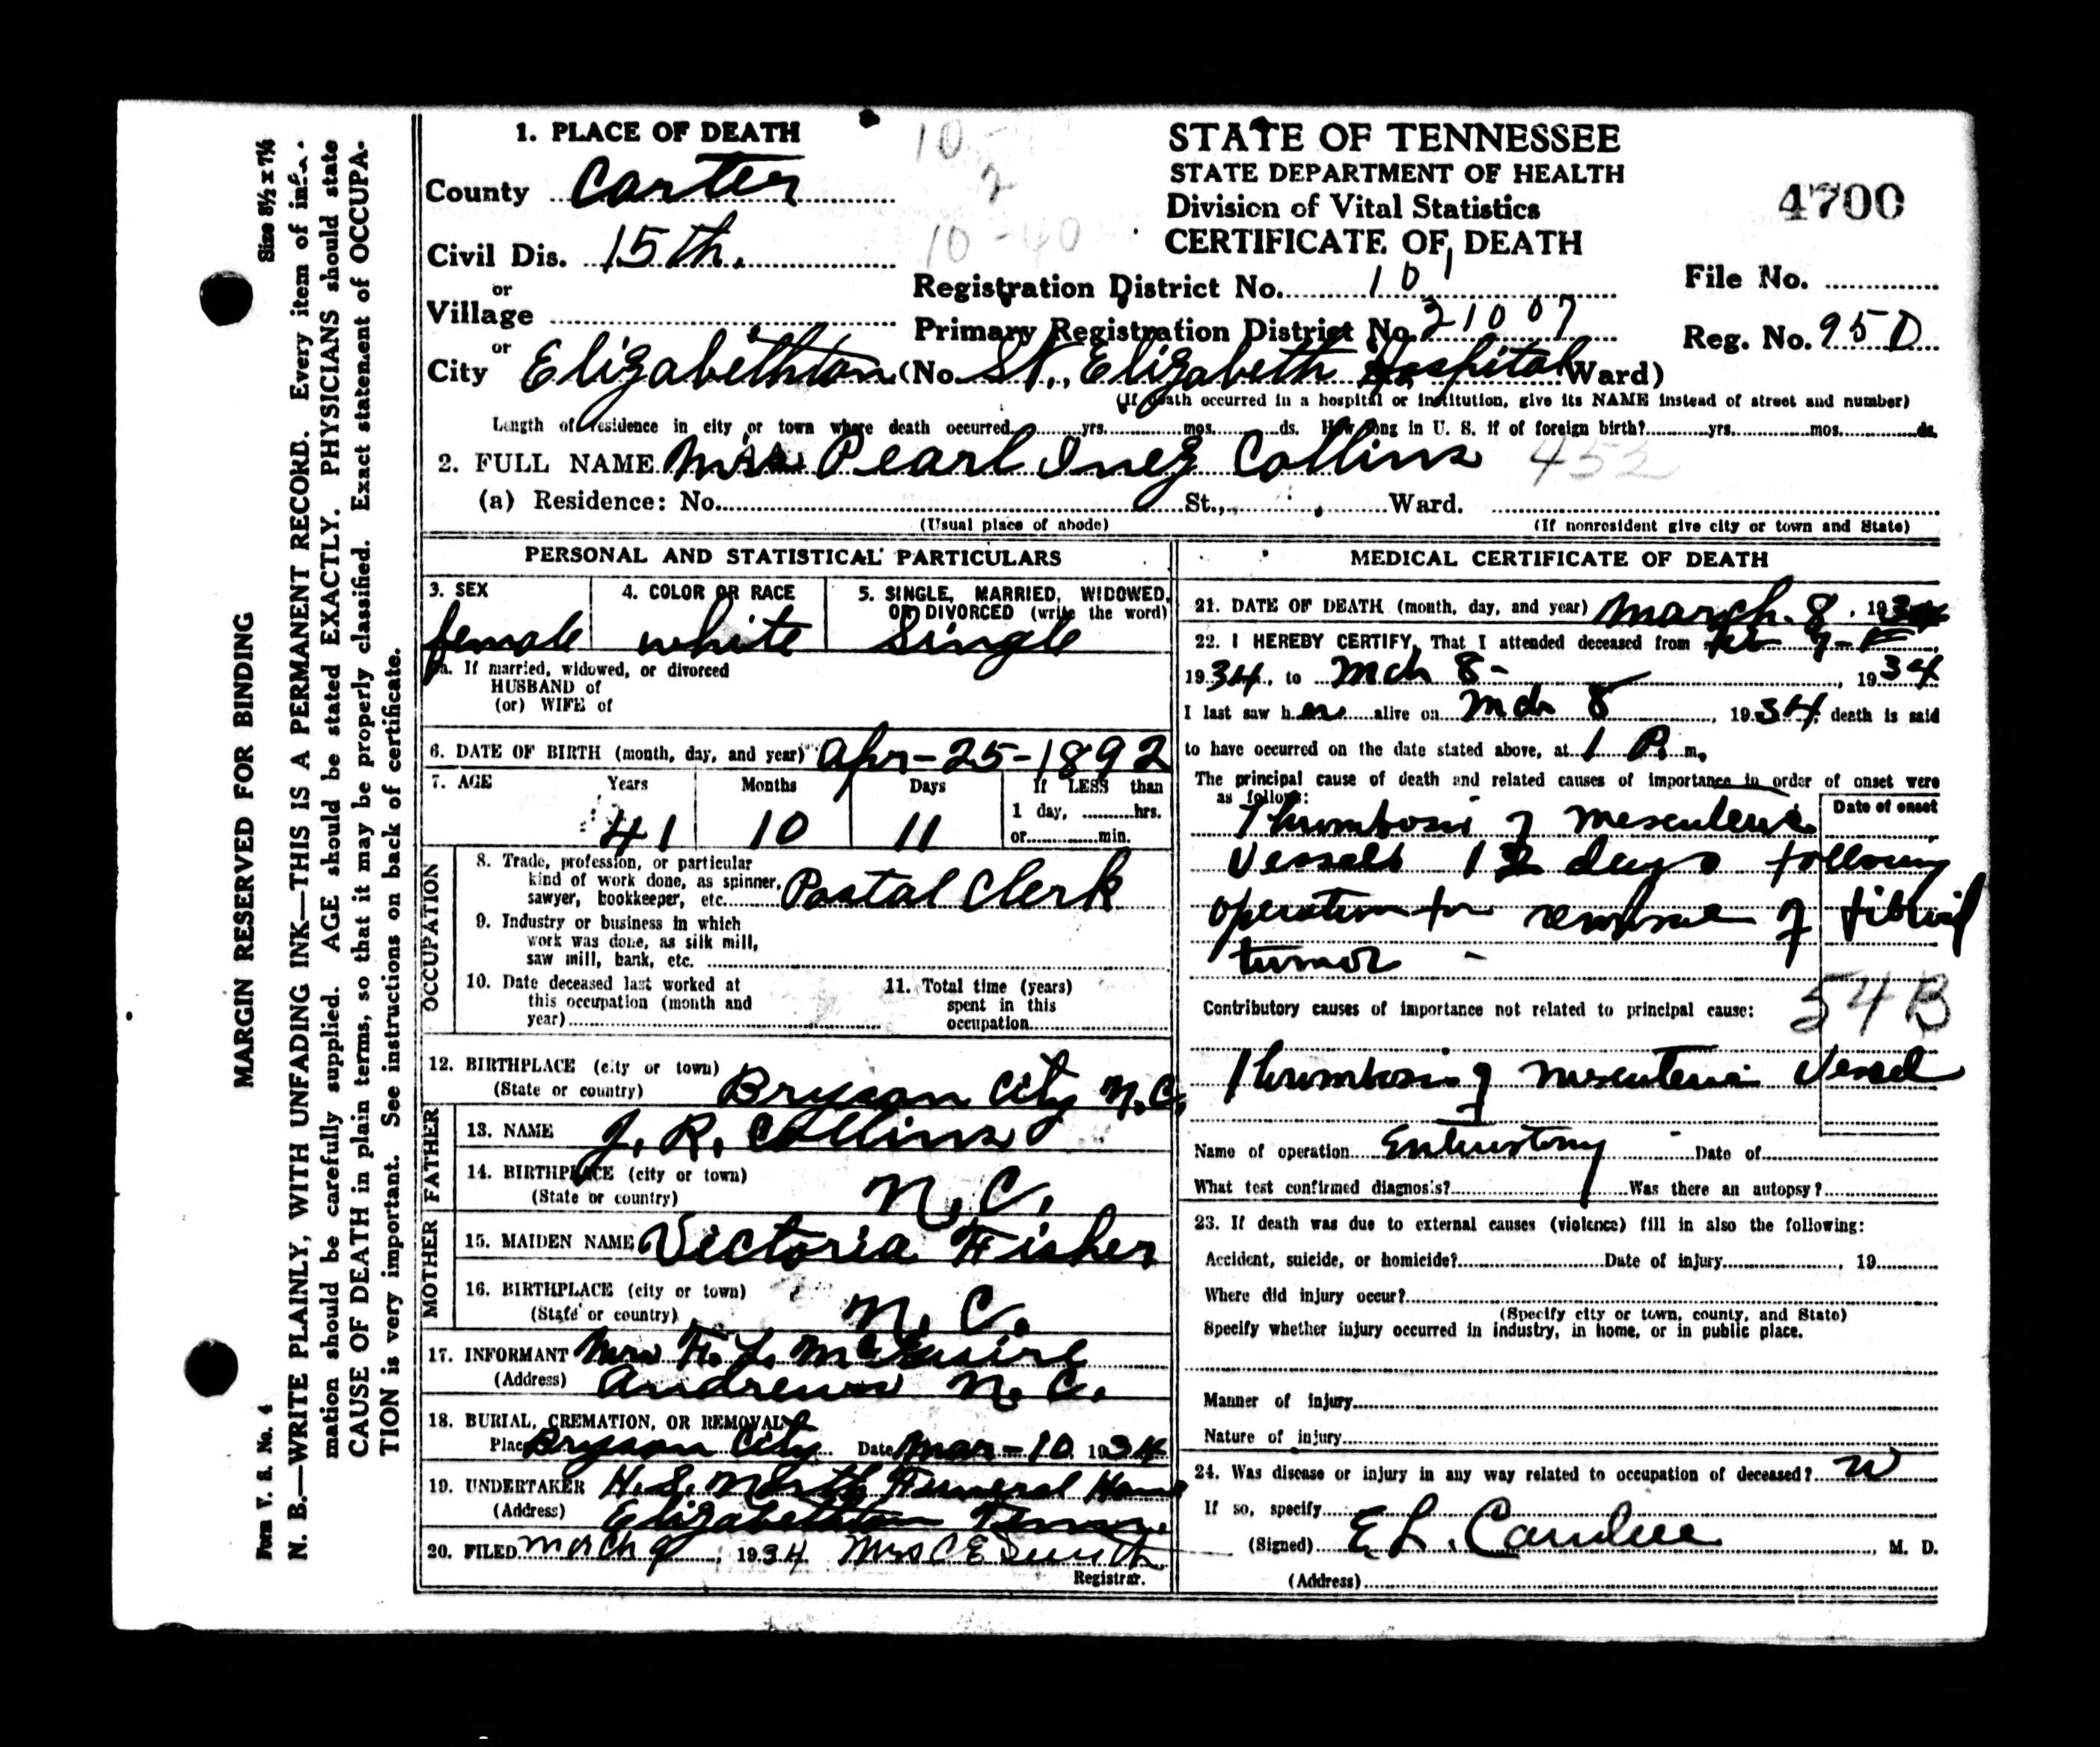 1. PLACE OF DEATH
County Carter
Civil Dis. 15th.
or
Village
or
City Elizabethton (No. St. Elizabeth Hospital Ward)
10-
2
10-40
STATE OF TENNESSEE
STATE DEPARTMENT OF HEALTH
Division of Vital Statistics
CERTIFICATE OF DEATH
4700
Registration District No. 101
File No.
Primary Registration District No. 21007
Reg. No. 95D
(If death occurred in a hospital or institution, give its NAME instead of street and number)
Length of residence in city or town where death occurred yrs. mos. ds. How long in U. S. if of foreign birth? yrs. mos. ds.
2. FULL NAME Pearl Inez Collins 452
(a) Residence: No. St., Ward.
(Usual place of abode) (If nonresident give city or town and State)
PERSONAL AND STATISTICAL PARTICULARS
3. SEX
female
4. COLOR OR RACE
white
5. SINGLE, MARRIED, WIDOWED, OR DIVORCED (write the word)
Single
a. If married, widowed, or divorced
HUSBAND of
(or) WIFE of
6. DATE OF BIRTH (month, day, and year) Apr-25-1892
7. AGE Years Months Days If LESS than
1 day, hrs.
or min.
41 10 11
OCCUPATION
8. Trade, profession, or particular
kind of work done, as spinner,
sawyer, bookkeeper, etc. Postal Clerk
9. Industry or business in which
work was done, as silk mill,
saw mill, bank, etc.
10. Date deceased last worked at
this occupation (month and
year)
11. Total time (years)
spent in this
occupation
12. BIRTHPLACE (city or town)
(State or country) Bryson City N.C.
FATHER
13. NAME J. R. Collins
14. BIRTHPLACE (city or town)
(State or country) N.C.
MOTHER
15. MAIDEN NAME Victoria Fisher
16. BIRTHPLACE (city or town)
(State or country) N.C.
17. INFORMANT Mrs F. L. McGuire
(Address) Andrews N.C.
18. BURIAL, CREMATION, OR REMOVAL
Place Bryson City Date Mar-10 1934
19. UNDERTAKER H. S. North Funeral Home
(Address) Elizabethton Tenn.
20. FILED March 9, 1934 Mrs C E Smith
Registrar.
MEDICAL CERTIFICATE OF DEATH
21. DATE OF DEATH (month, day, and year) March 8, 1934
22. I HEREBY CERTIFY, That I attended deceased from
1934, to Mch 8-, 1934
I last saw her alive on Mch 8, 1934, death is said
to have occurred on the date stated above, at 1 P. m.
The principal cause of death and related causes of importance in order of onset were
as follows:
Date of onset
Thrombosis of mesenteric
Vessels 12 days following
operation for removal of fibroid
tumor -
54B
Contributory causes of importance not related to principal cause:
Thrombosis of mesenteric Vessel
Name of operation Enterostomy Date of
What test confirmed diagnosis? Was there an autopsy?
23. If death was due to external causes (violence) fill in also the following:
Accident, suicide, or homicide? Date of injury , 19
Where did injury occur?
(Specify city or town, county, and State)
Specify whether injury occurred in industry, in home, or in public place.
Manner of injury
Nature of injury
24. Was disease or injury in any way related to occupation of deceased?
If so, specify
(Signed) E. L. Caudill, M. D.
(Address)
MARGIN RESERVED FOR BINDING
Form V. S. No. 4 Size 8½ x 7¼
N. B.—WRITE PLAINLY, WITH UNFADING INK—THIS IS A PERMANENT RECORD. Every item of infor-
mation should be carefully supplied. AGE should be stated EXACTLY. PHYSICIANS should state
CAUSE OF DEATH in plain terms, so that it may be properly classified. Exact statement of OCCUPA-
TION is very important. See instructions on back of certificate.